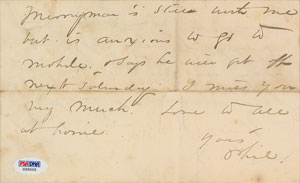 Merryman is still with me
but is anxious to go to
mobile. says he will get
next Saturday. I miss you
very much. Love to all
at home.
Yours
Phil.
PSA/DNA